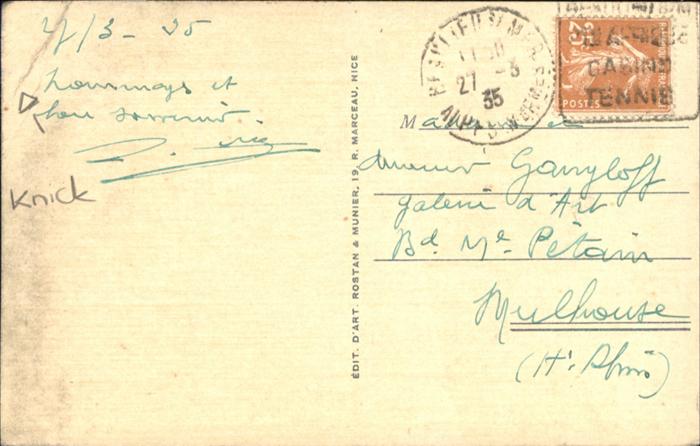 27/3 - 35
hommages et
bon souvenir
Knick
ÉDIT. D'ART. ROSTAN & MUNIER, 19, R. MARCEAU, NICE
BEAULIEU S. MER
27 -3
35
ALPES MARMES
CASINO
TENNIS
POSTES
M
Gavryloff
galerie d'Art
Bd. Mal Pétain
Mulhouse
(Ht. Rhin)